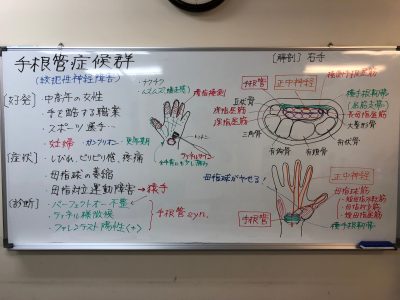 手根管症候群
(絞扼性神経障害)
[好発]・中高年の女性
・手を酷使する職業
・スポーツ選手‥
・妊婦 ・ガングリオン ・更年期
[症状]・しびれ、ピリピリ感、疼痛
・母指球の萎縮
・母指対立運動障害→猿手
[診断]・パーフェクトオー不整
・ティネル様徴候
・ファレンテスト陽性(+)
手根管syn.
・チクチク
母指球がやせる!
[解剖] 右手
手根管
正中神経
横手根靭帯
長母指屈筋
大菱形骨
有頭骨
有鈎骨
三角骨
豆状骨
浅指屈筋
深指屈筋
正中神経
母指球筋
・短母指外転筋
・母指対立筋
・短母指屈筋
手根管
横手根靭帯